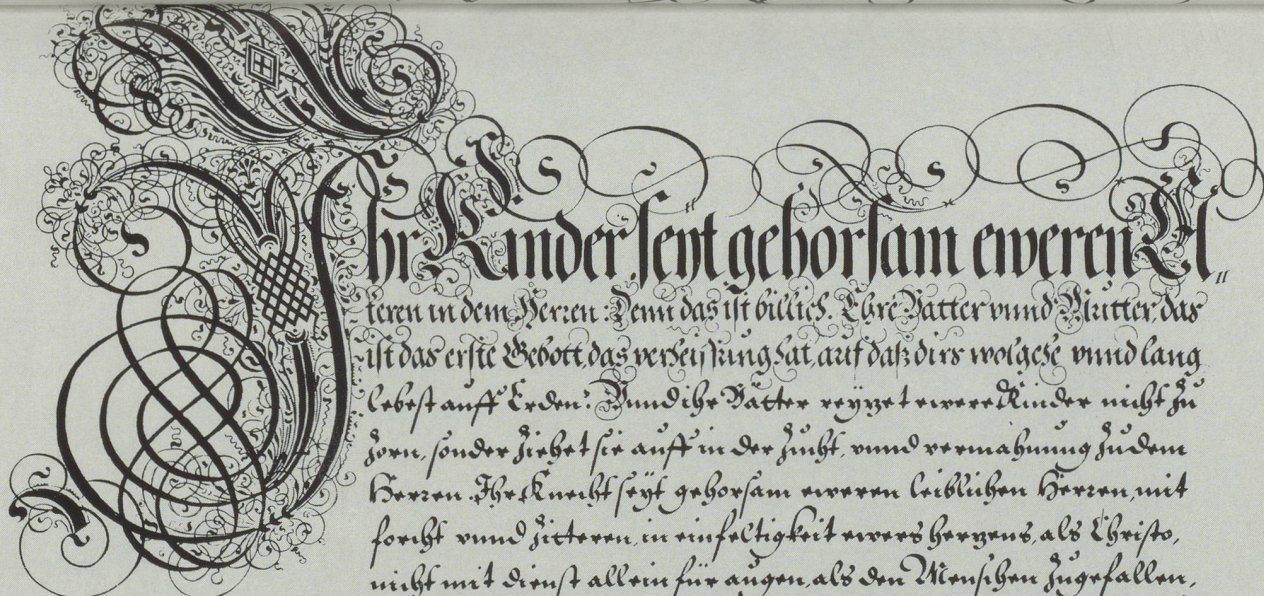 Ihr Kinder seyt gehorsam eweren El„
teren in dem Herren: Denn das ist billich. Ehre Vatter vnnd Mutter, das
ist das erste Gebott, das verheissung hat, auf daß dirs wolgehe vnnd lang
lebest auff Erden: Vnnd ihr Vätter reyzet ewere Kinder nicht zu
zorn, sonder ziehet sie auff in der zucht, vnnd vermahnung zu dem
Herren. Ihr Knecht seyt gehorsam eweren leiblichen Herren, mit
forcht vnnd zitteren, in einfeltigkeit ewers herzens, als Christo,
nicht mit dienst allein für augen, als den Menschen zugefallen,